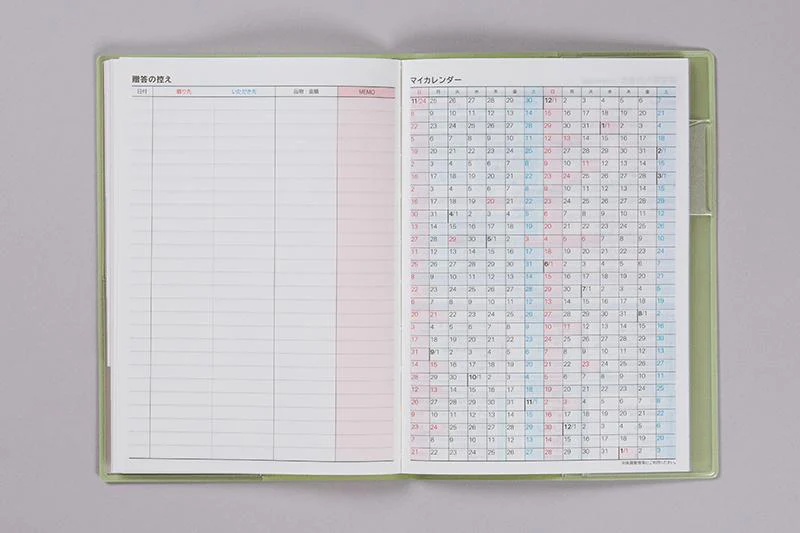 贈答の控え
日付 贈り先 いただき先 品物・金額 MEMO
マイカレンダー
日 月 火 水 木 金 土 日 月 火 水 木 金 土
11/24 25 26 27 28 29 30 12/1 2 3 4 5 6 7
8 9 10 11 12 13 14 15 16 17 18 19 20 21
22 23 24 25 26 27 28 29 30 31 1/1 2 3 4
5 6 7 8 9 10 11 12 13 14 15 16 17 18
19 20 21 22 23 24 25 26 27 28 29 30 31 2/1
2 3 4 5 6 7 8 9 10 11 12 13 14 15
16 17 18 19 20 21 22 23 24 25 26 27 28 3/1
2 3 4 5 6 7 8 9 10 11 12 13 14 15
16 17 18 19 20 21 22 23 24 25 26 27 28 29
30 31 4/1 2 3 4 5 6 7 8 9 10 11 12
13 14 15 16 17 18 19 20 21 22 23 24 25 26
27 28 29 30 5/1 2 3 4 5 6 7 8 9 10
11 12 13 14 15 16 17 18 19 20 21 22 23 24
25 26 27 28 29 30 31 6/1 2 3 4 5 6 7
8 9 10 11 12 13 14 15 16 17 18 19 20 21
22 23 24 25 26 27 28 29 30 7/1 2 3 4 5
6 7 8 9 10 11 12 13 14 15 16 17 18 19
20 21 22 23 24 25 26 27 28 29 30 31 8/1 2
3 4 5 6 7 8 9 10 11 12 13 14 15 16
17 18 19 20 21 22 23 24 25 26 27 28 29 30
31 9/1 2 3 4 5 6 7 8 9 10 11 12 13
14 15 16 17 18 19 20 21 22 23 24 25 26 27
28 29 30 10/1 2 3 4 5 6 7 8 9 10 11
12 13 14 15 16 17 18 19 20 21 22 23 24 25
26 27 28 29 30 31 11/1 2 3 4 5 6 7 8
9 10 11 12 13 14 15 16 17 18 19 20 21 22
23 24 25 26 27 28 29 30 12/1 2 3 4 5 6
7 8 9 10 11 12 13 14 15 16 17 18 19 20
21 22 23 24 25 26 27 28 29 30 31 1/1 2 3
※体調管理等にご利用ください。